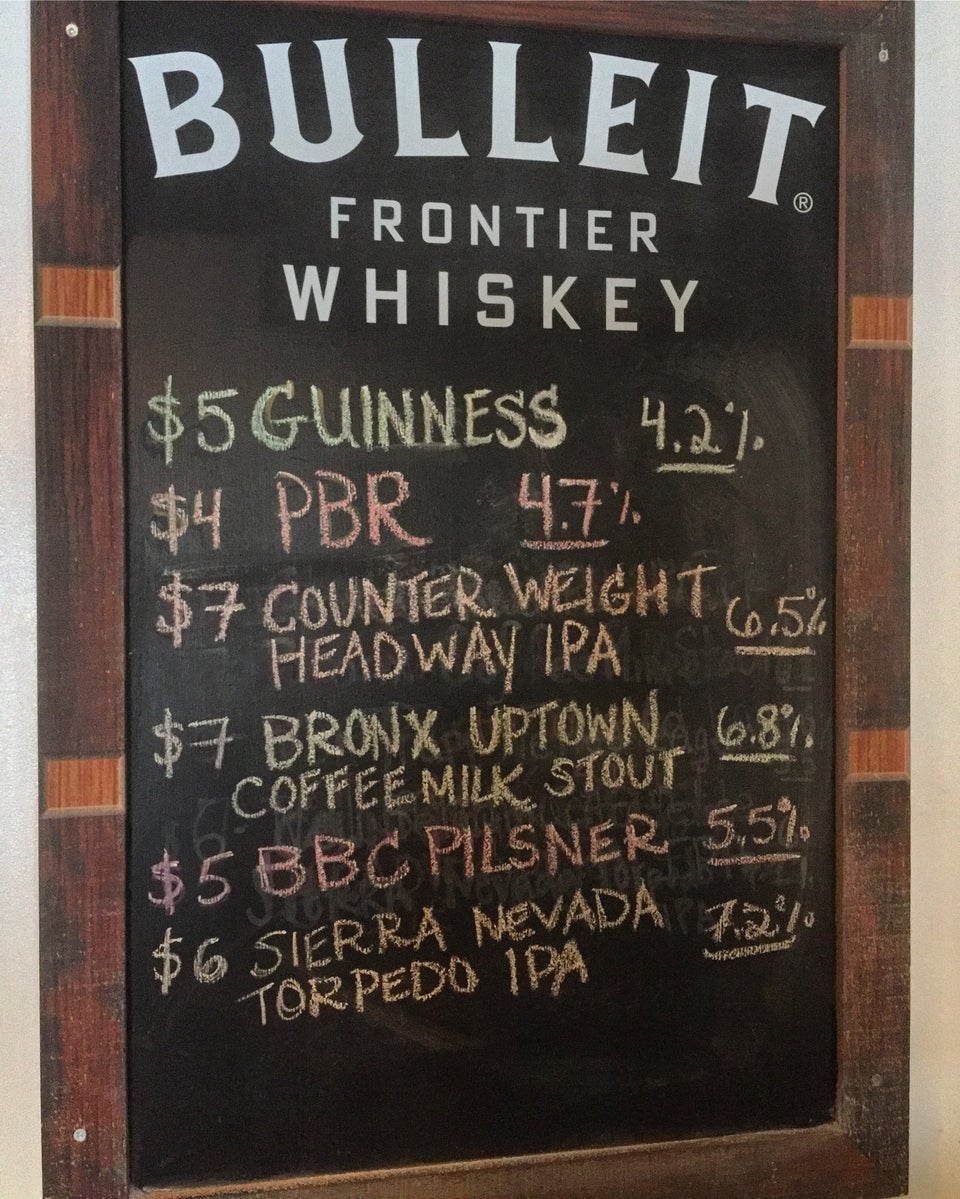 BULLEIT®
FRONTIER
WHISKEY
$5 GUINNESS 4.2%
$4 PBR 4.7%
$7 COUNTER WEIGHT 6.5%
HEADWAY IPA
$7 BRONX UPTOWN 6.8%
COFFEE MILK STOUT
$5 BBC PILSNER 5.5%
$6 SIERRA NEVADA 7.2%
TORPEDO IPA